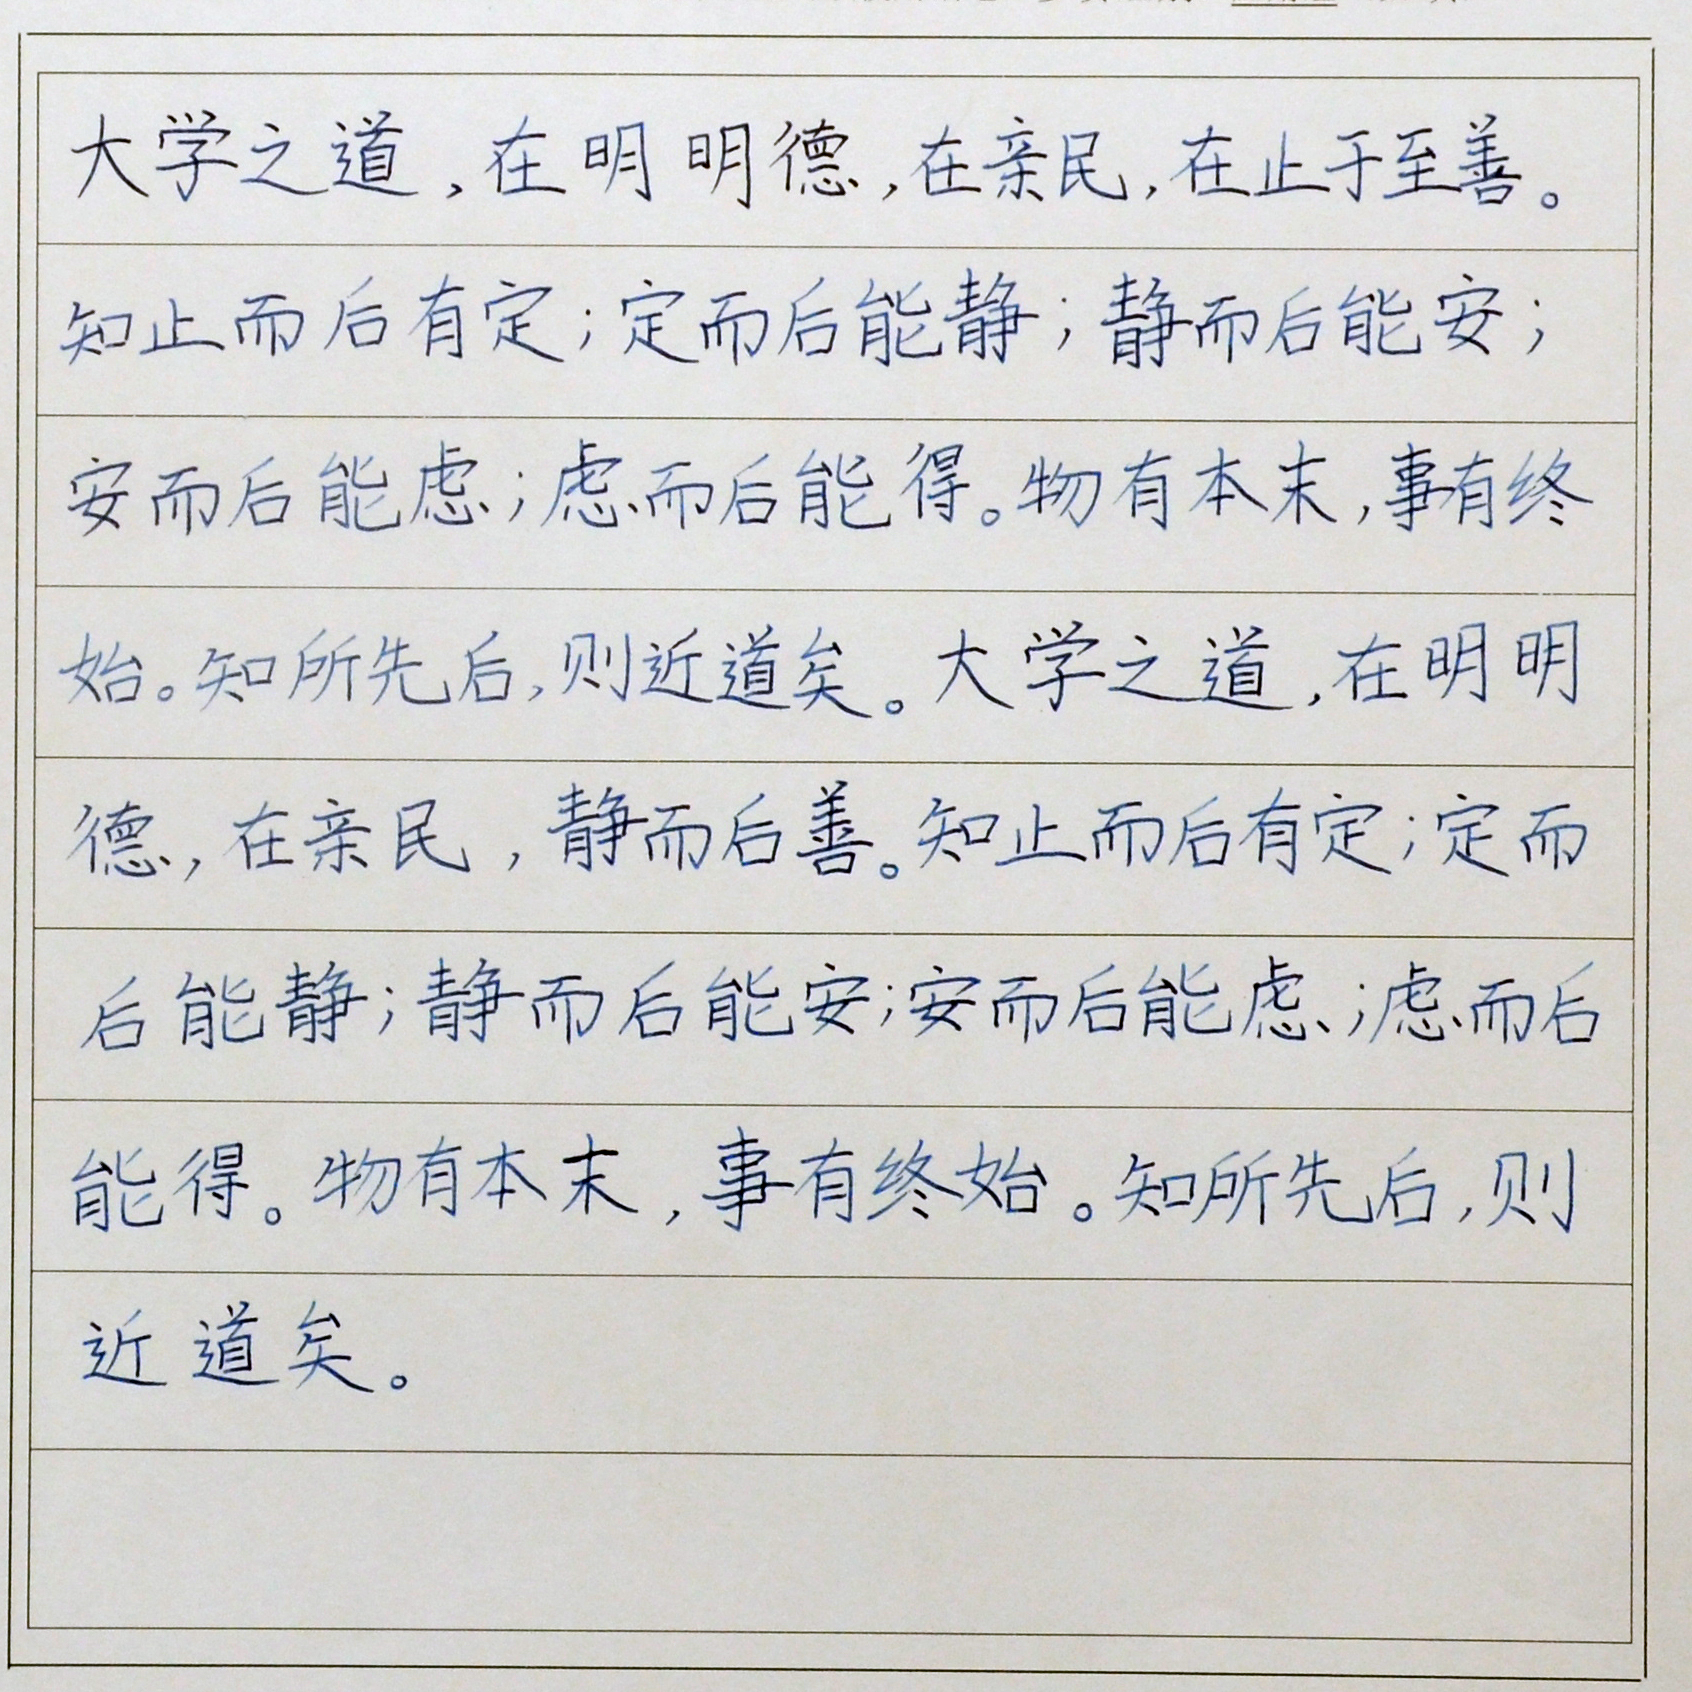 大学之道,在明明德,在亲民,在止于至善。
知止而后有定;定而后能静;静而后能安;
安而后能虑;虑而后能得。物有本末,事有终
始。知所先后,则近道矣。大学之道,在明明
德,在亲民,静而后善。知止而后有定;定而
后能静;静而后能安;安而后能虑;虑而后
能得。物有本末,事有终始。知所先后,则
近道矣。